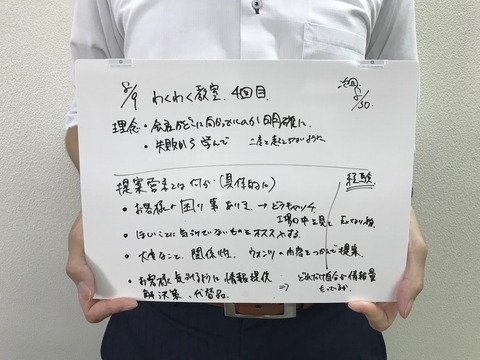 8/9 わくわく教室. 4回目. 次回 8/30.
理念・会社がどこに向かっているのか明確に.
・失敗から学んで 二度と起こさないように
提案営業とは何か(具体的に) 経験.
・お客様の困り事ありき. → どうキャッチ.
工場の中を見て
・ほしいことに気づいていないものをオススメする.
・大事なこと. 関係性. ウォンツの内容をつかんで提案.
・お客様に気づけるように情報提供 ⇒ どれだけ自分が情報量
解決策、代替品. もっているか.